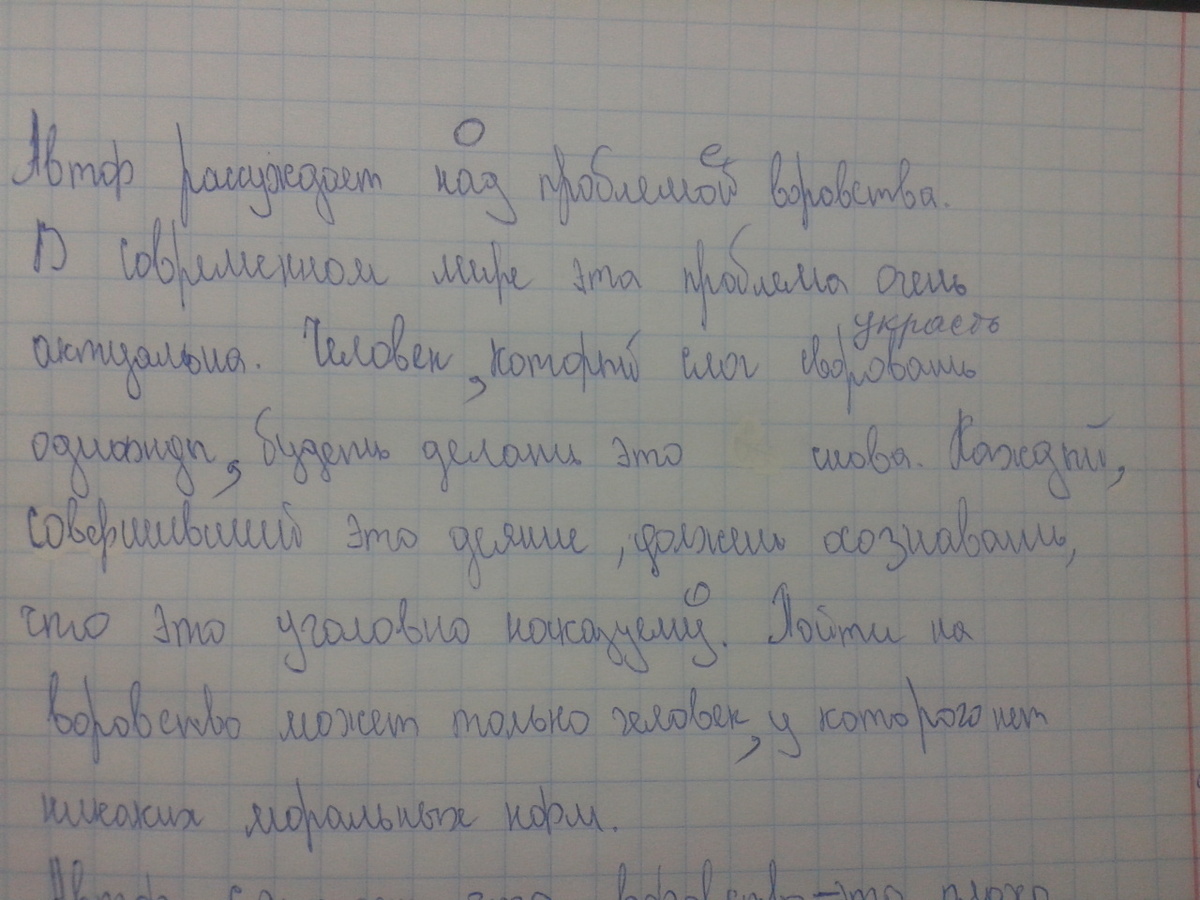 О е
Автор рассуждает над проблемой воровства.
В современном мире эта проблема очень
украсть
актуальна. Человек, который смог своровать
однажды, будеть делать это снова. Каждый,
совершивший это деяние, должень осознавать,
о
что это уголовно наказуему. Пойти на
воровство может только человек, у которого нет
никаких моральных норм.
Автор воровство - это плохо